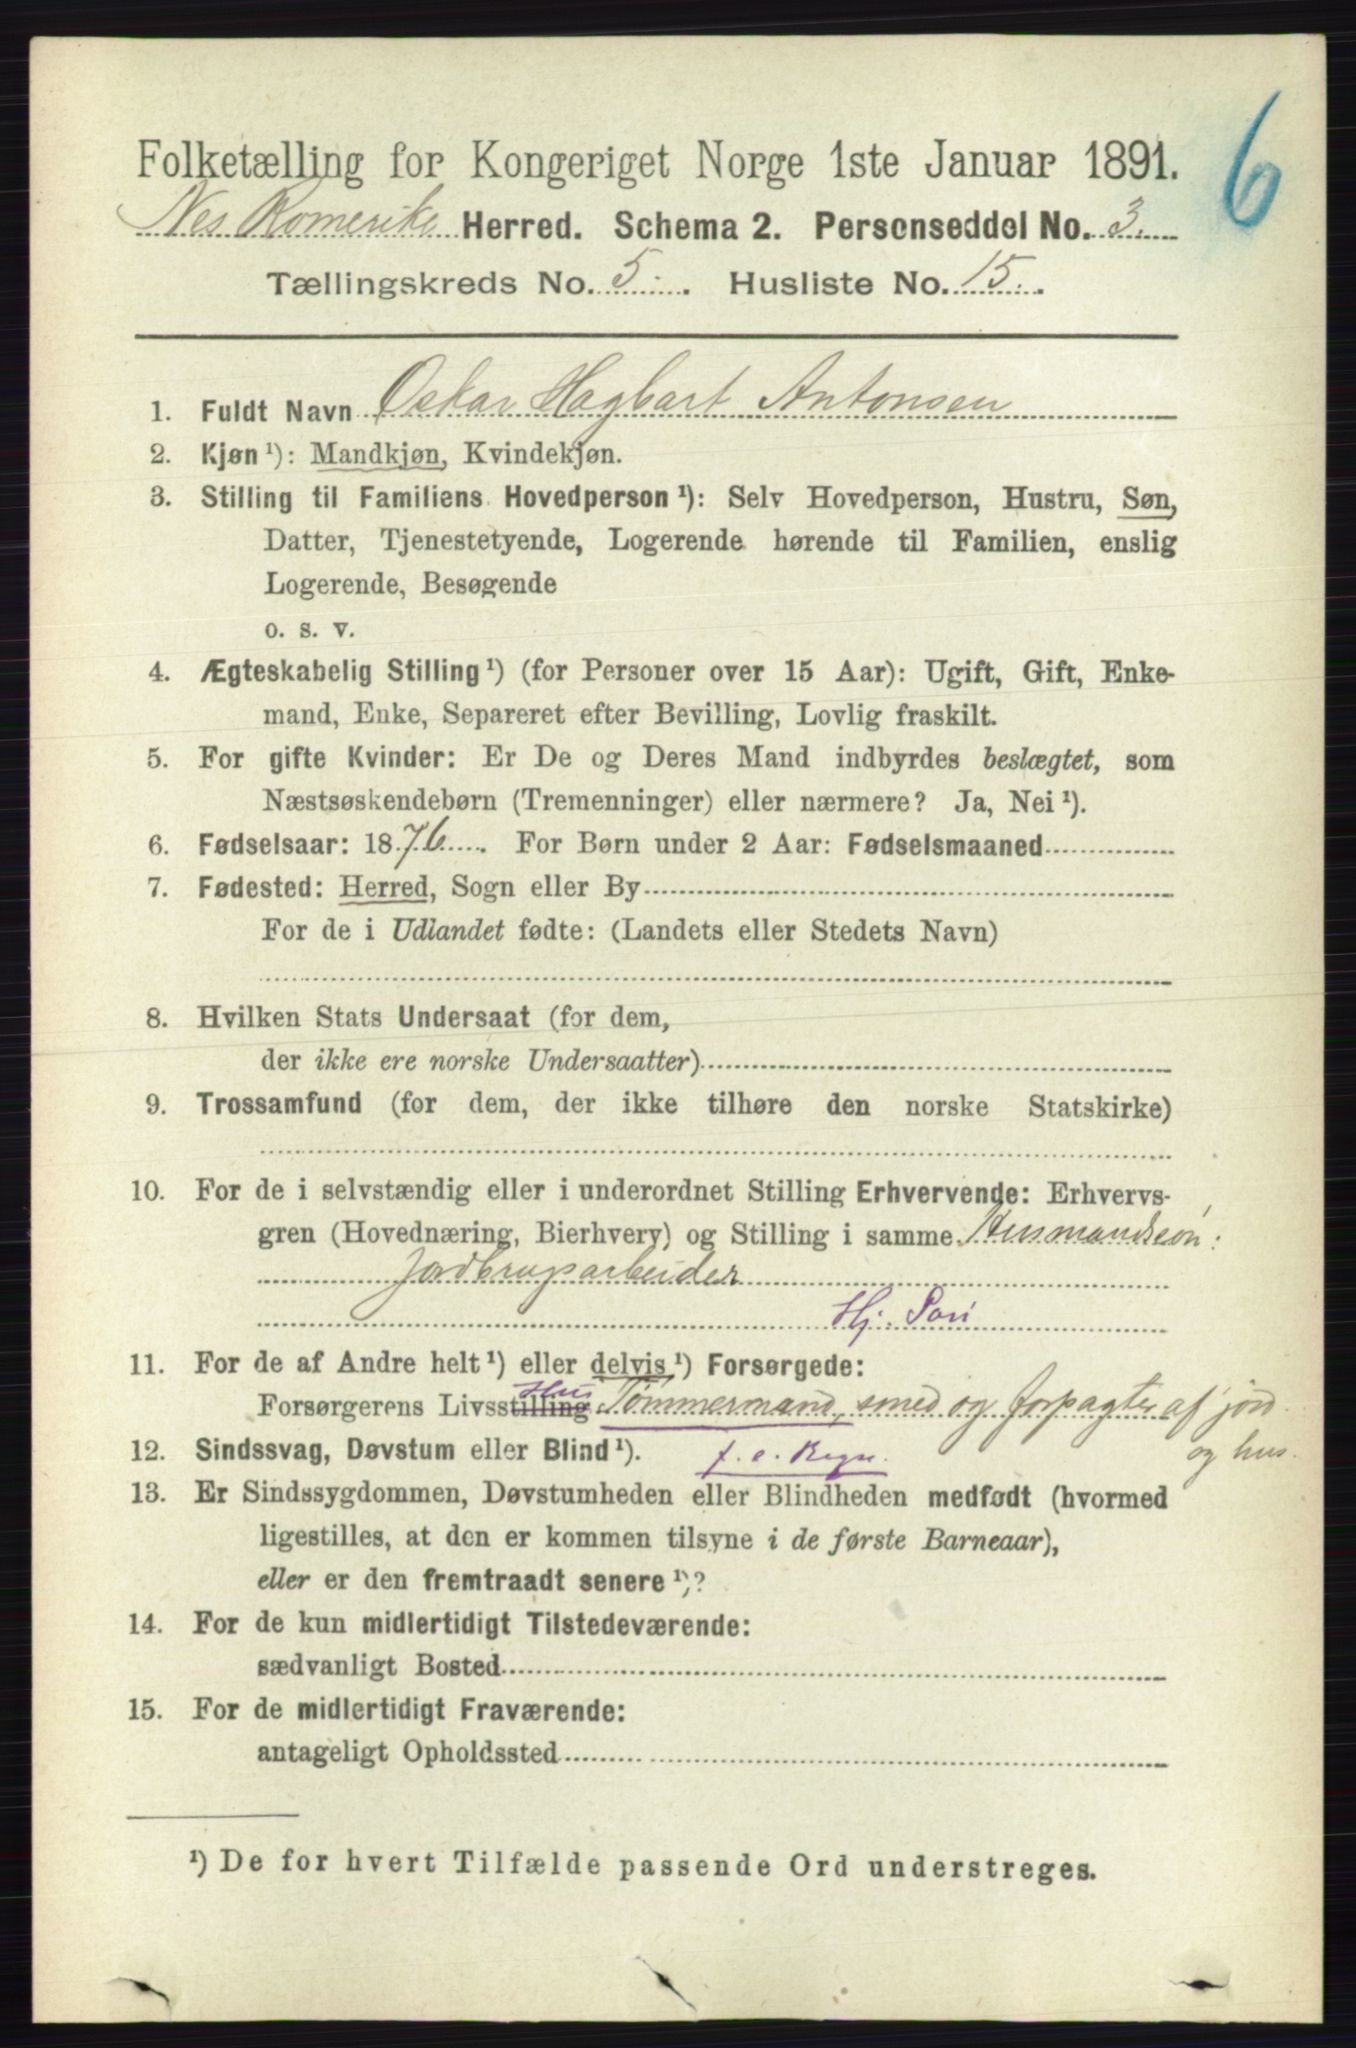 6
Folketælling for Kongeriget Norge 1ste Januar 1891.
Nes Romerike Herred. Schema 2. Personseddel No. 3.
Tællingskreds No. 5. Husliste No. 15.
1. Fuldt Navn Oskar Hagbart Antonsen
2. Kjøn ¹): Mandkjøn, Kvindekjøn.
3. Stilling til Familiens Hovedperson ¹): Selv Hovedperson, Hustru, Søn,
Datter, Tjenestetyende, Logerende hørende til Familien, enslig
Logerende, Besøgende
o. s. v.
4. Ægteskabelig Stilling ¹) (for Personer over 15 Aar): Ugift, Gift, Enke-
mand, Enke, Separeret efter Bevilling, Lovlig fraskilt.
5. For gifte Kvinder: Er De og Deres Mand indbyrdes beslægtet, som
Næstsøskendebørn (Tremenninger) eller nærmere? Ja, Nei ¹).
6. Fødselsaar: 1876. For Børn under 2 Aar: Fødselsmaaned
7. Fødested: Herred, Sogn eller By
For de i Udlandet fødte: (Landets eller Stedets Navn)
8. Hvilken Stats Undersaat (for dem,
der ikke ere norske Undersaatter)
9. Trossamfund (for dem, der ikke tilhøre den norske Statskirke)
10. For de i selvstændig eller i underordnet Stilling Erhvervende: Erhvervs-
gren (Hovednæring, Bierhverv) og Stilling i samme Husmandssøn:
Jordbrugsarbeider
Hj. Søn
11. For de af Andre helt ¹) eller delvis ¹) Forsørgede:
Hus
Forsørgerens Livsstilling Tømmermand, smed og forpagter af jord
og hus.
12. Sindssvag, Døvstum eller Blind ¹). f. e. Regn.
13. Er Sindssygdommen, Døvstumheden eller Blindheden medfødt (hvormed
ligestilles, at den er kommen tilsyne i de første Barneaar),
eller er den fremtraadt senere ¹)?
14. For de kun midlertidigt Tilstedeværende:
sædvanligt Bosted
15. For de midlertidigt Fraværende:
antageligt Opholdssted
¹) De for hvert Tilfælde passende Ord understreges.